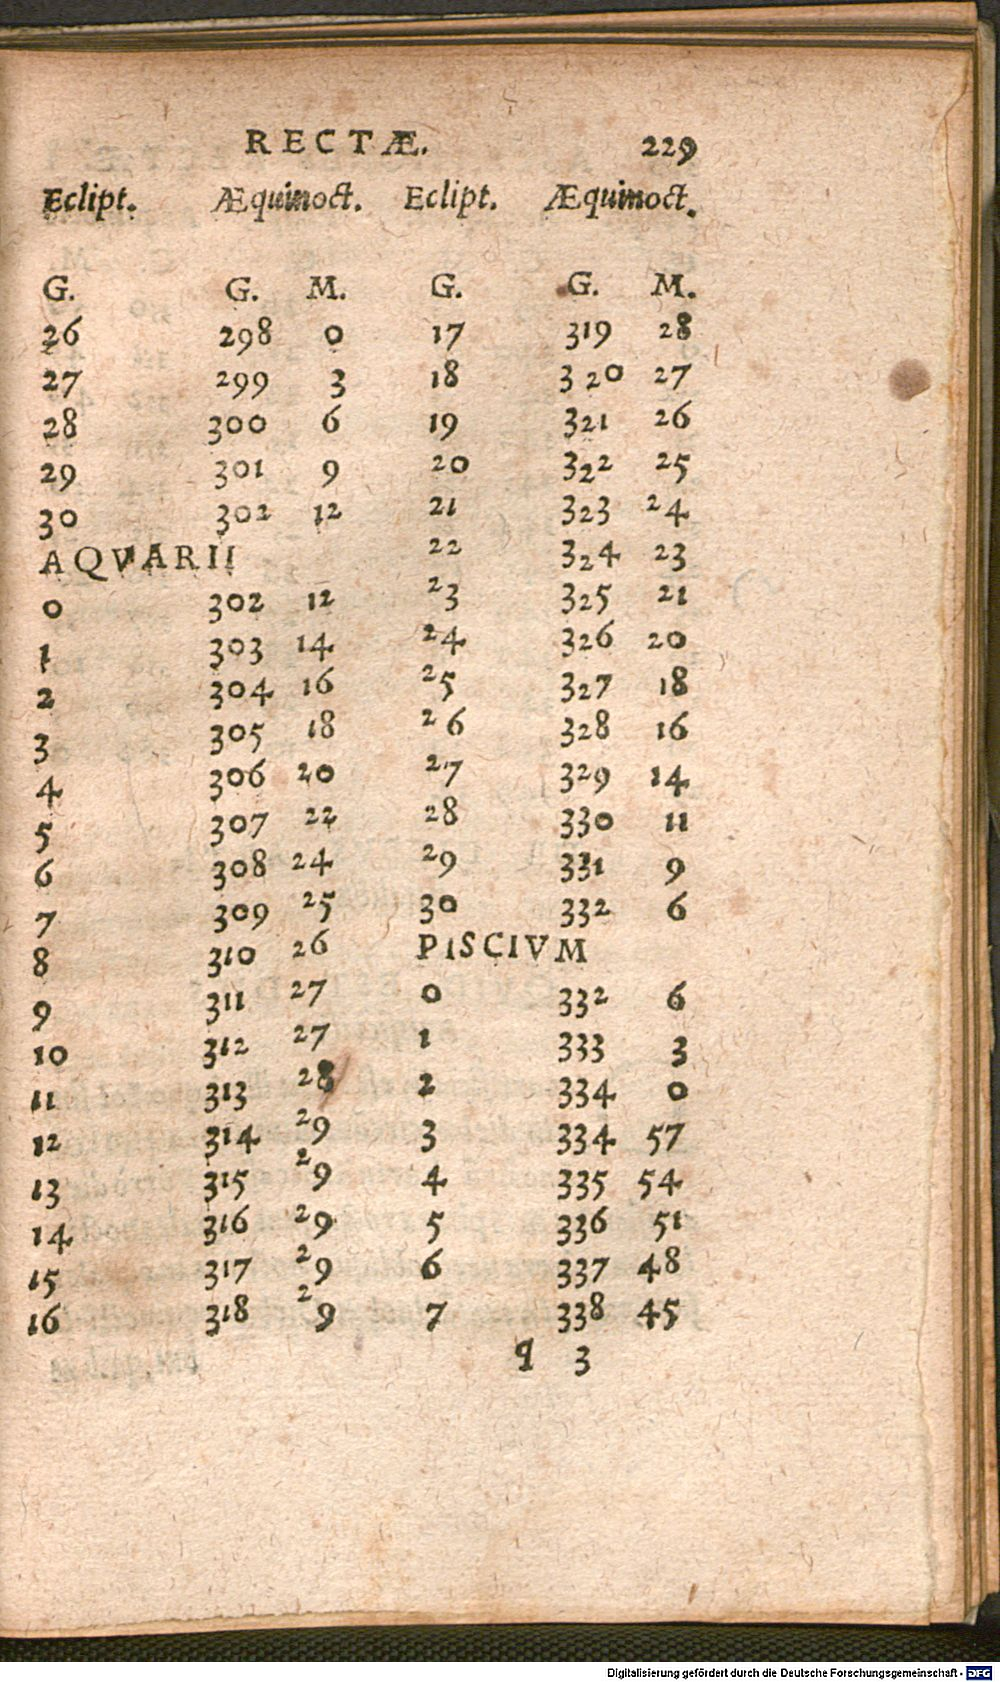 RECTÆ. 229
Eclipt. Æquinoct. Eclipt. Æquinoct.
G. G. M. G. G. M.
26 298 0 17 319 28
27 299 3 18 320 27
28 300 6 19 321 26
29 301 9 20 322 25
30 302 12 21 323 24
AQVARII 22 324 23
0 302 12 23 325 21
1 303 14 24 326 20
2 304 16 25 327 18
3 305 18 26 328 16
4 306 20 27 329 14
5 307 22 28 330 11
6 308 24 29 331 9
7 309 25 30 332 6
8 310 26 PISCIVM
9 311 27 0 332 6
10 312 27 1 333 3
11 313 28 2 334 0
12 314 29 3 334 57
13 315 29 4 335 54
14 316 29 5 336 51
15 317 29 6 337 48
16 318 29 7 338 45
q 3
Digitalisierung gefördert durch die Deutsche Forschungsgemeinschaft - DFG